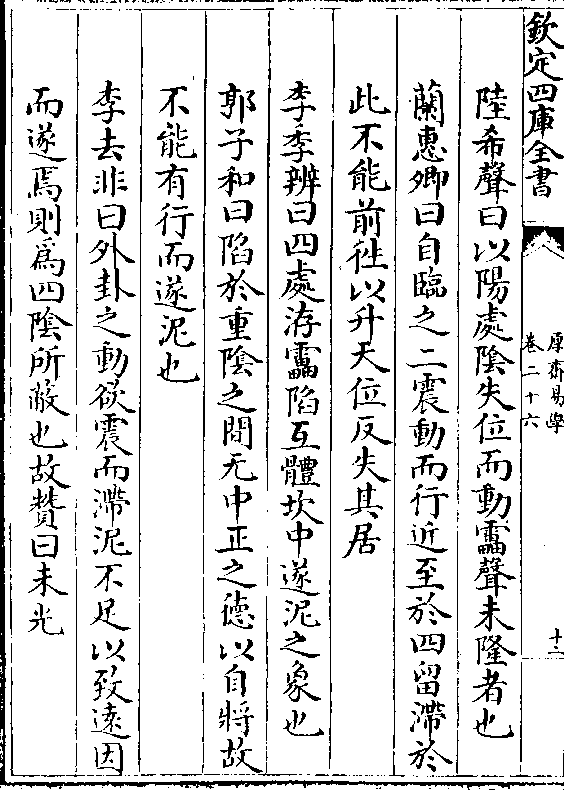 欽定四庫全書
厚齋易學
卷二十六
十三
陸希聲曰以陽處陰失位而動靁聲未隆者也
蘭惠卿曰自臨之二震動而行近至於四留滯於
此不能前徃以升天位反失其居
李季辨曰四處洊靁陷互體坎中遂泥之象也
郭子和曰陷於重陰之間无中正之德以自將故
不能有行而遂泥也
李去非曰外卦之動欲震而滯泥不足以致遠因
而遂焉則為四隂所蔽也故贊曰未光